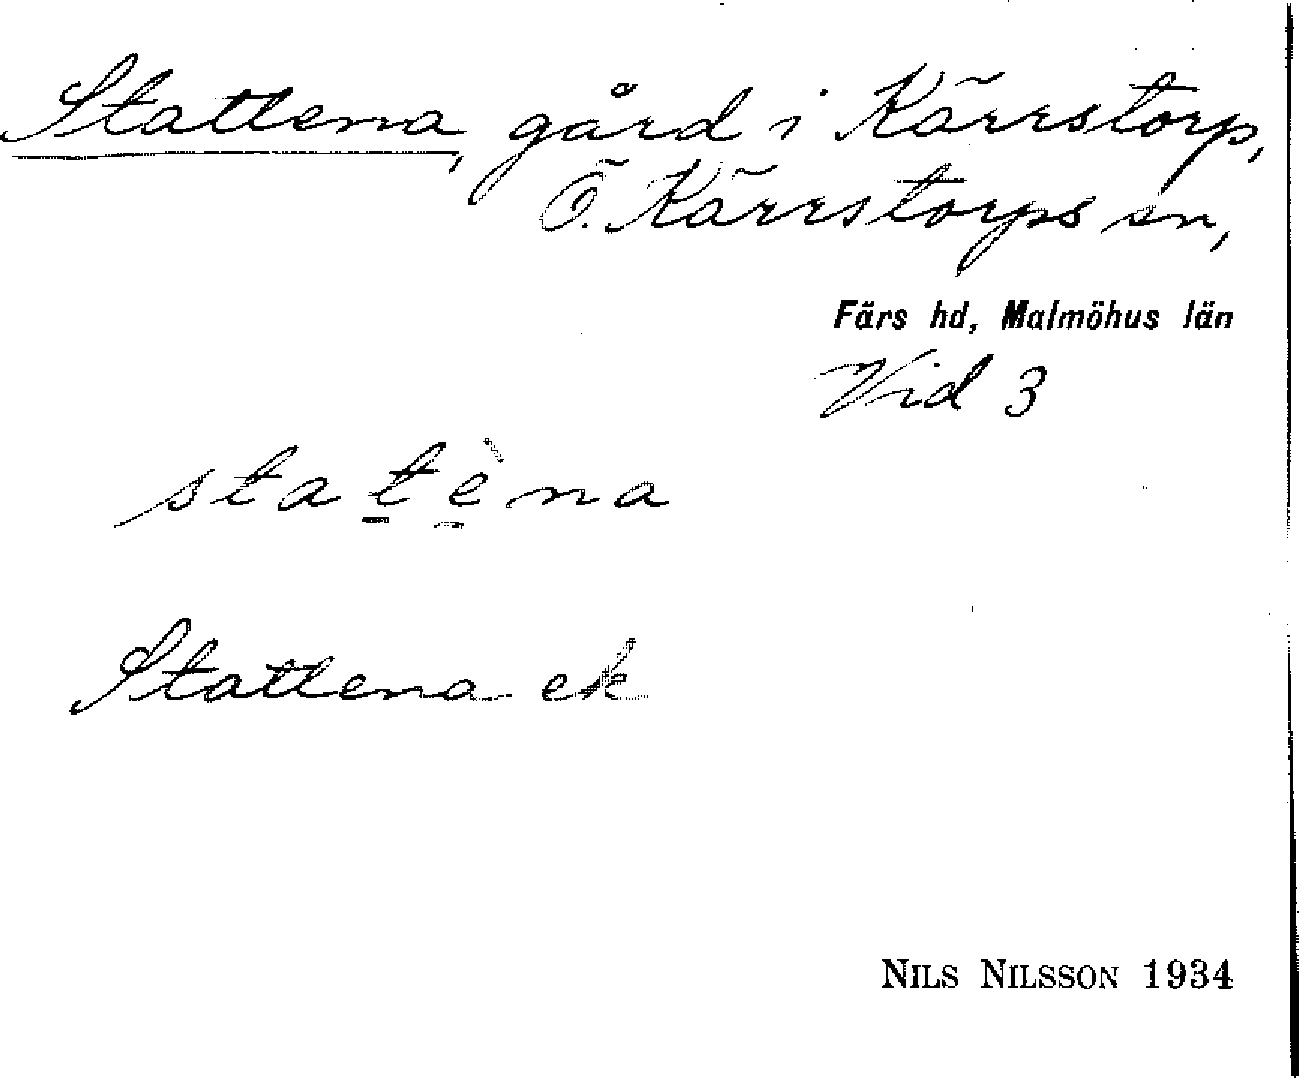 Stattena, gård i Kärrstorp,
Ö. Kärrstorps sn,
Färs hd, Malmöhus län
Vid 3
sta t̲ è̲ na
Stattena ek
NILS NILSSON 1934